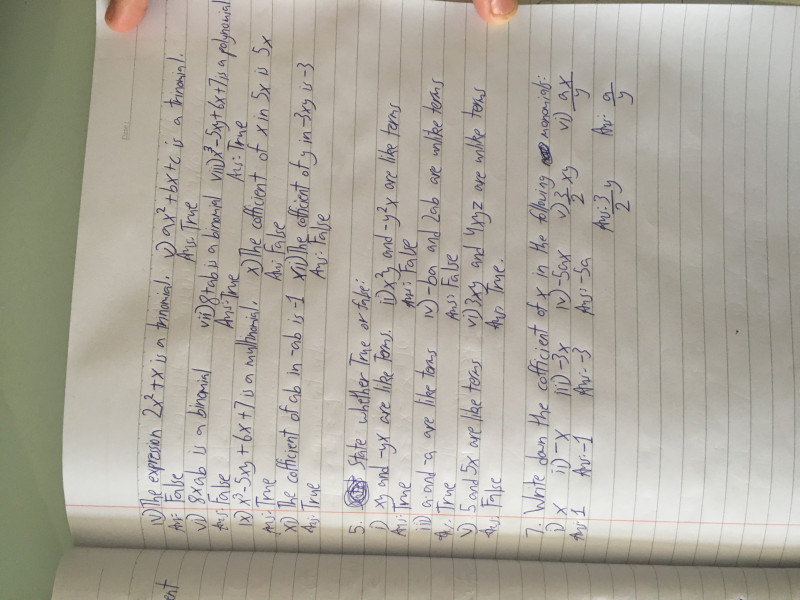 Date:
iv) The expression 2x²+x is a trinomial. v) ax²+bx+c is a trinomial.
Ans: False Ans: True
vi) 8xab is a binomial vii) 8+ab is a binomial viii) x³-5xy+6x+7 is a polynomial
Ans: False Ans: True Ans: True
ix) x³-5xy+6x+7 is a multinomial. x) The cofficient of x in 5x is 5x
Ans: True Ans: False
xi) The cofficient of ab in -ab is -1 xii) The cofficient of y in -3xy is -3
Ans: True Ans: False
5. State whether True or False:
i) xy and -yx are like terms. ii) x²y and -y²x are like terms
Ans: True Ans: False
iii) a and -a are like terms iv) -ba and 2ab are unlike terms
Ans: True Ans: False
v) 5 and 5x are like terms vi) 3xy and 4xyz are unlike terms
Ans: False Ans: True.
7. Write down the cofficient of x in the following monomials:
i) x ii) -x iii) -3x iv) -5ax v) 3/2 xy vi) ax/y
Ans: 1 Ans: -1 Ans: -3 Ans: -5a Ans: 3/2 y Ans: a/y
ent